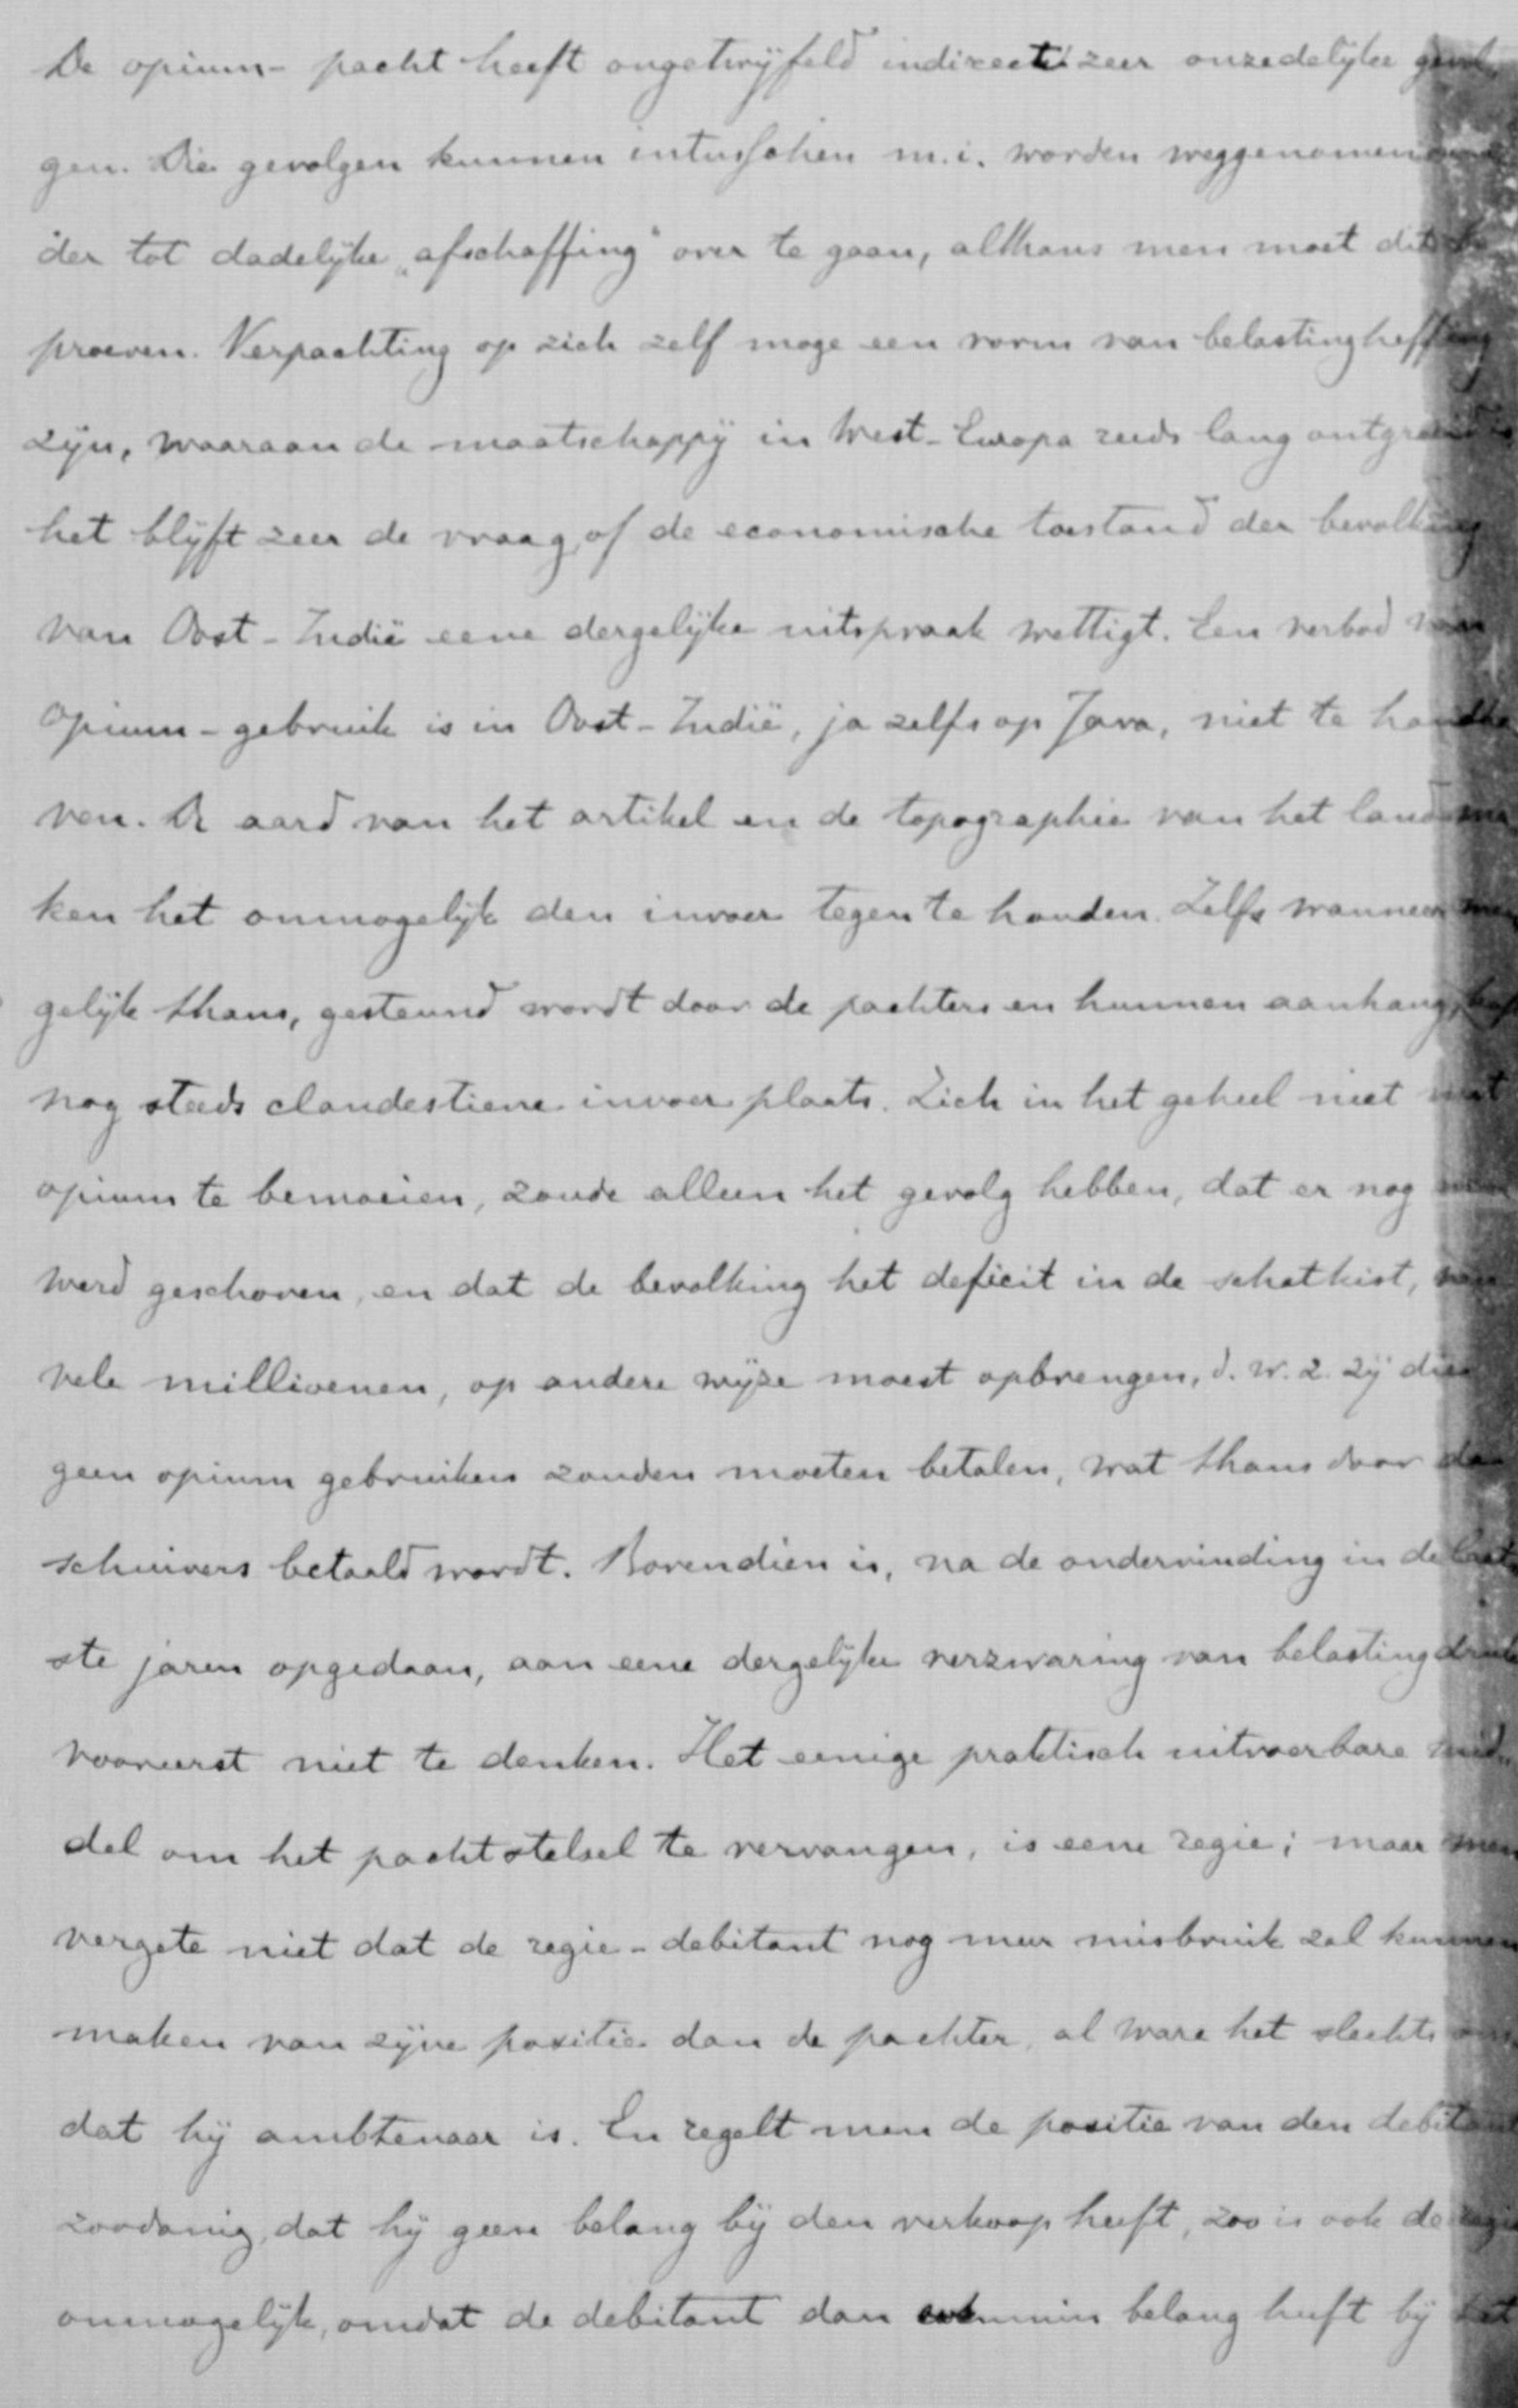 De opium- pacht heeft ongetwijfeld indirect zeer onzedelijke gevol
gen. Die gevolgen kunnen intusschen m.i. worden weggenomen
der tot dadelijke „afschaffing" over te gaan, althans men moet dit
proeven. Verpachting op zich zelf moge een vorm van belastingheffing
zijn, waaraan de maatschappij in West-Europa reeds lang ontgroeid is
het blijft zeer de vraag, of de economische toestand der bevolking
van Oost-Indië eene dergelijke uitspraak wettigt. Een verbod van
opium-gebruik is in Oost-Indië, ja zelfs op Java, niet te handha
ven. De aard van het artikel en de topographie van het land ma
ken het onmogelijk den invoer tegen te houden. Zelfs wanneer men
gelijk thans, gesteund wordt door de pachters en hunnen aanhang,
nog steeds clandestiene invoer plaats. Zich in het geheel niet met
opium te bemoeien, zoude alleen het gevolg hebben, dat er nog meer
werd geschoven, en dat de bevolking het deficit in de schatkist, van
vele millioenen, op andere wijze moest opbrengen, d.w.z. zij die
geen opium gebruiken zouden moeten betalen, wat thans door de
schuivers betaald wordt. Bovendien is, na de ondervinding in de laat
ste jaren opgedaan, aan eene dergelijke verzwaring van belastingdruk
vooreerst niet te denken. Het eenige praktisch uitvoerbare mid-
del om het pachtstelsel te vervangen, is eene regie; maar men
vergete niet dat de regie-debitant nog meer misbruik zal kunnen
maken van zijne positie dan de pachter, al ware het slechts om
dat hij ambtenaar is. En regelt men de positie van den debitant
zoodanig, dat hij geen belang bij den verkoop heeft, zoo is ook de regie
onmogelijk, omdat de debitant dan min belang heeft bij het